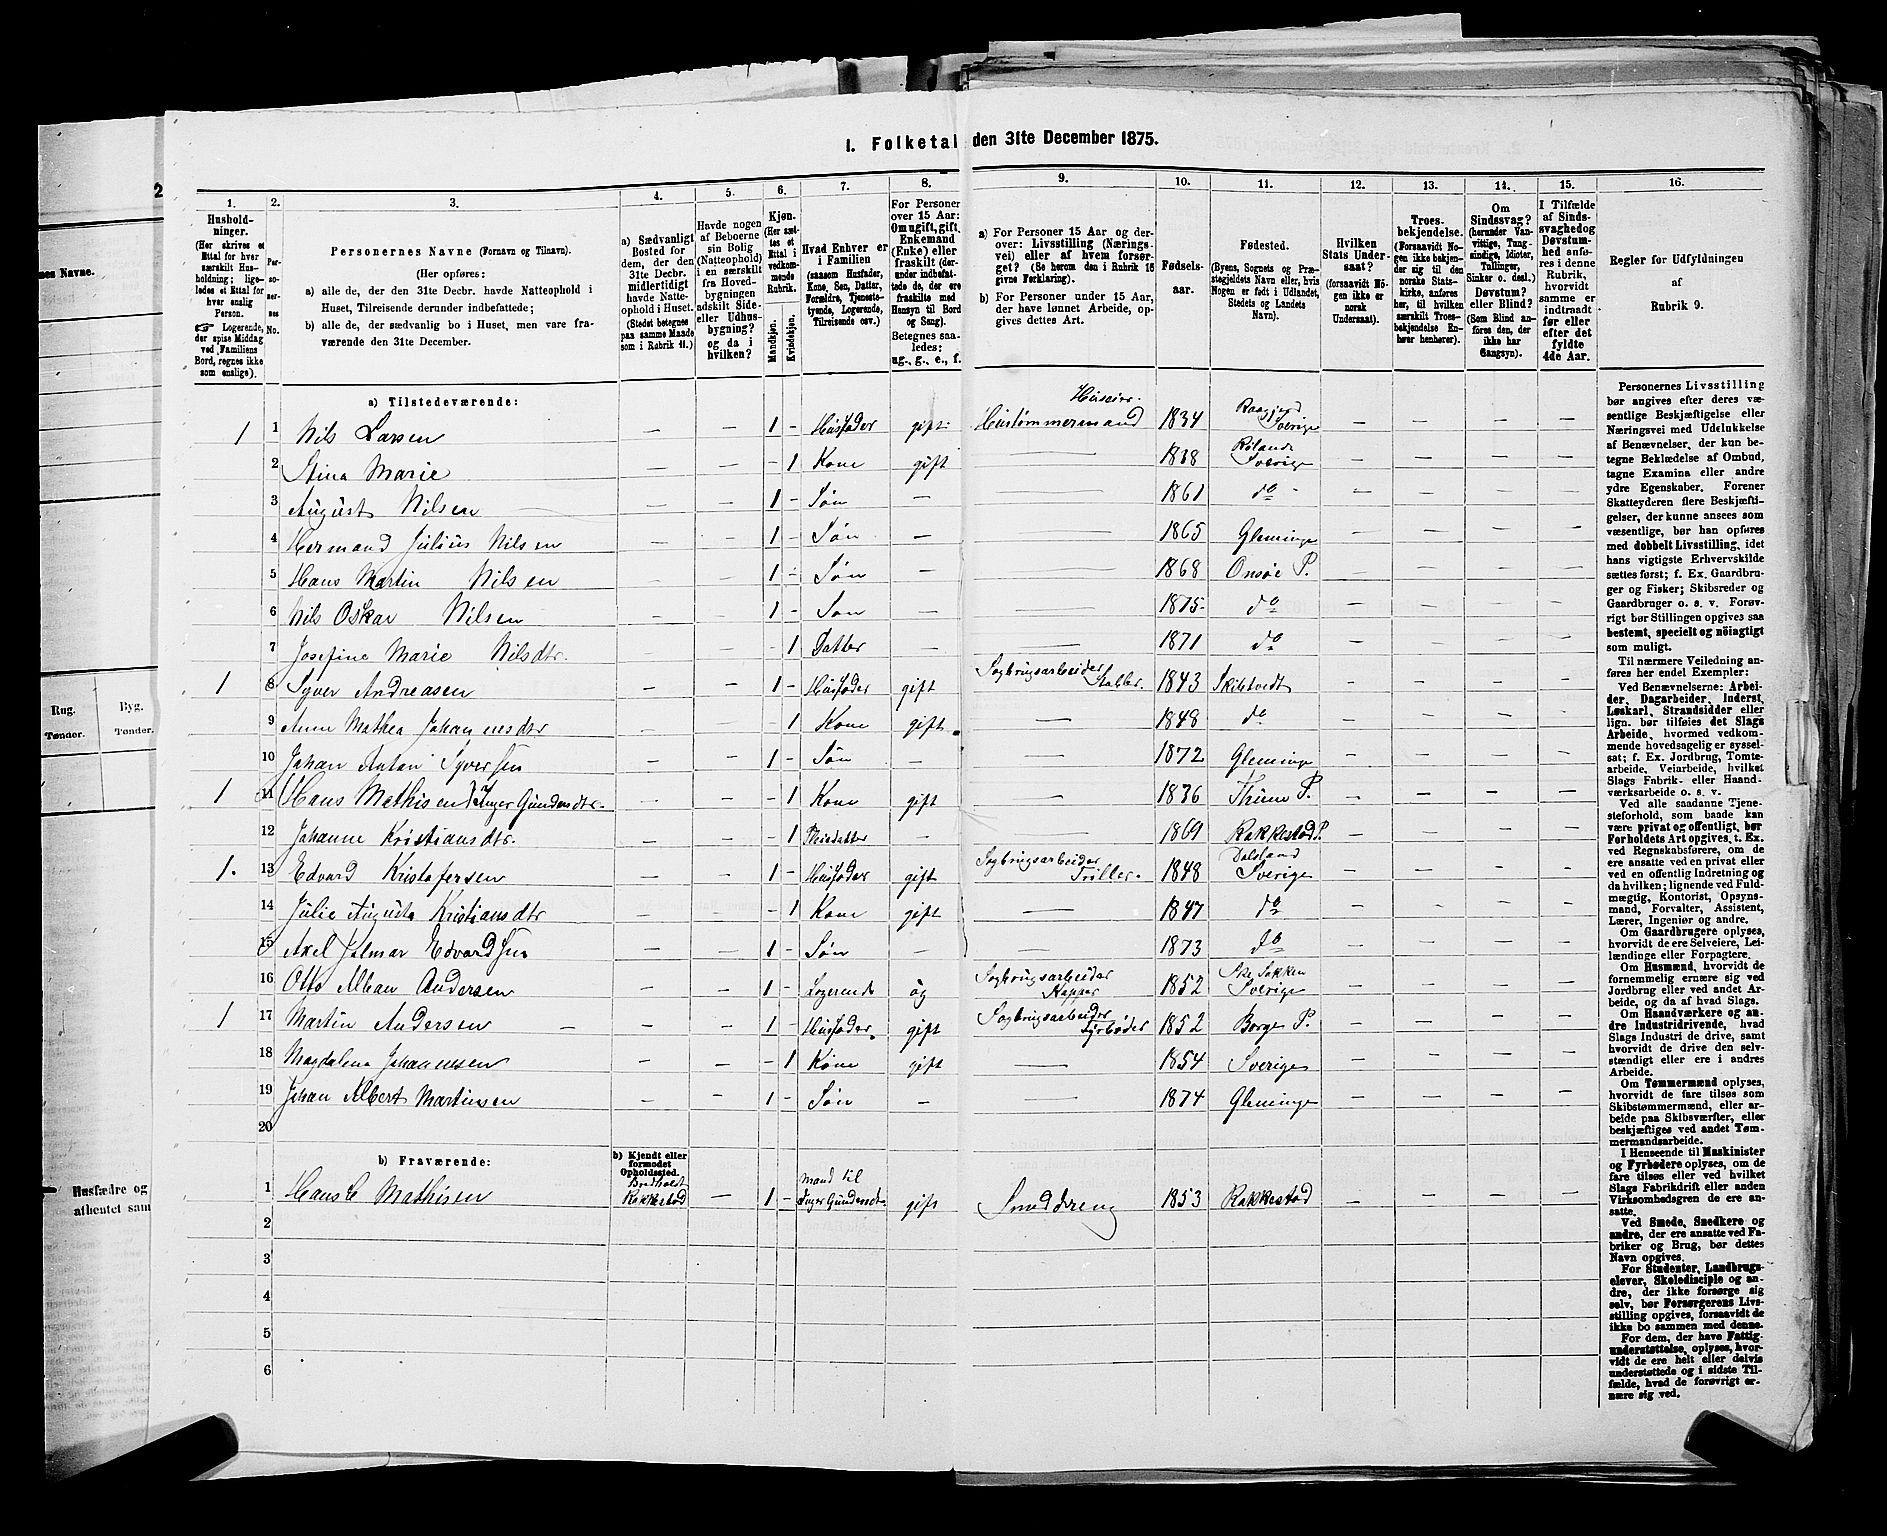 1. Folketal den 31te December 1875.
1. 2. 3. 4. 5. 6. 7. 8. 9. 10. 11. 12. 13. 14. 15. 16.
Hushold-
ninger.
(Her skrives et
Ettal for hver
særskilt Hus-
holdning; lige-
ledes et Ettal for
hver enslig
Person.
☞ Logerende,
der spise Middag
ved Familiens
Bord, regnes ikke
som enslige).
Per-
so-
ner-
nes
No.
Personernes Navne (Fornavn og Tilnavn).
(Her opføres:
a) alle de, der den 31te Decbr. havde Natteophold i
Huset, Tilreisende derunder indbefattede;
b) alle de, der sædvanlig bo i Huset, men vare fra-
værende den 31te December.
a) Sædvanligt
Bosted for
dem, der den
31te Decbr.
midlertidigt
havde Natte-
ophold i Huset.
(Stedet betegnes
paa samme Maade
som i Rubrik 11.)
Havde nogen
af Beboerne
sin Bolig
(Natteophold)
i en særskilt
fra Hoved-
bygningen
adskilt Side-
eller Udhus-
bygning?
og da i
hvilken?
Kjøn.
(Her sæt-
tes et
Ettal i
vedkom-
mende
Rubrik.
Mandkjøn.
Kvindekjøn.
Hvad Enhver er
i Familien
(saasom Husfader,
Kone, Søn, Datter,
Forældre, Tjeneste-
tyende, Logerende,
Tilreisende osv.)
For Personer
over 15 Aar:
Om ugift, gift,
Enkemand
(Enke) eller
fraskilt (der-
under indbefat-
tede de, der ere
fraskilte med
Hensyn til Bord
og Seng).
Betegnes saa-
ledes:
ug., g., e., f.
a) For Personer 15 Aar og der-
over: Livsstilling (Nærings-
vei) eller af hvem forsør-
get? (Se herom den i Rubrik 16
givne Forklaring).
b) For Personer under 15 Aar,
der have lønnet Arbeide, op-
gives dettes Art.
Fødsels-
aar.
Fødested.
(Byens, Sognets og Præ-
stegjeldets Navn eller, hvis
Nogen er født i Udlandet,
Stedets og Landets
Navn).
Hvilken
Stats Under-
saat?
(forsaavidt No-
gen ikke er
norsk
Undersaat).
Troes-
bekjendelse.
(Forsaavidt No-
gen ikke bekjen-
der sig til den
norske Stats-
kirke, anføres
her, til hvilken
særskilt Troes-
bekjendelse En-
hver henhører).
Om
Sindssvag?
(herunder Van-
vittige, Tung-
sindige, Idioter,
Tullinger,
Sinker o. desl.)
Døvstum?
eller Blind?
(Som Blind an-
føres den, der
ikke har
Gangsyn).
I Tilfælde
af Sinds-
svaghed og
Døvstum-
hed anfø-
res i denne
Rubrik,
hvorvidt
samme er
indtraadt
før eller
efter det
fyldte
4de Aar.
Regler for Udfyldningen
af
Rubrik 9.
a) Tilstedeværende:
Huseier.
1 1 Nils Larsen — — 1 - Husfader gift Hustømmermand 1834 Sverige — — — —
2 Stina Marie — — - 1 Kone gift — 1838 Sverige — — — —
3 August Nilsen — — 1 - Søn — — 1861 do — — — —
4 Hermand Julius Nilsen — — 1 - Søn — — 1865 Gleminge — — — —
5 Hans Martin Nilsen — — 1 - Søn — — 1868 Onsøe P. — — — —
6 Nils Oskar Nilsen — — 1 - Søn — — 1875 do — — — —
7 Josefine Marie Nilsdtr. — — 1 Datter — — 1871 do — — — —
1 8 Syver Andreasen — — 1 - Husfader gift Sagbrugsarbeider Stabler. 1843 Skibtvedt — — — —
9 Anne Mathea Johannesdtr — — 1 Kone gift. — 1848 do — — — —
10 Johan Anton Syversen — — 1 - Søn — — 1872 Gleminge — — — —
1 11 (Hans Mathisen) Inger Gundersdtr. — — - 1 Kone gift 1836 Thune P. — — — —
12 Johanne Kristiansdtr. — — - 1 — 1869 Rakkestad P. — — — —
1. 13 Edvard Kristofersen — — 1 - Husfader gift Sagbrugsarbeider 1848 Dalsland Sverige — — — —
14 Julie Augusta Kristiansdtr — — - 1 Kone gift — 1847 do — — — —
15 Axel Jalmar Edvardsen — — 1 - Søn — — 1873 do — — — —
16 Otto Alban Andersen — — 1 - Logerende ug Sagbrugsarbeider Kapper 1852 Sverige — — — —
1 17 Martin Andersen — — — 1 - Husfader. gift Sagbrugsarbeider Fyrbøder 1852 Borge P. — — — —
18 Magdalena Johannesen — — - 1 Kone gift — 1854 Sverige — — — —
19 Johan Albert Martinsen — — 1 - Søn — — 1874 Gleminge — — — —
20
b) Fraværende:
b) Kjendt eller
formodet
Opholdssted.
1 Hans C Mathisen Rakkestad — 1 - mand til Inger Gundersdt. gift Smeddreng 1853 Rakkestad — — — —
2
3
4
5
6
Personernes Livsstilling
bør angives efter deres væ-
sentlige Beskjæftigelse eller
Næringsvei med Udelukkelse
af Benævnelser, der kun be-
tegne Beklædelse af Ombud,
tagne Examina eller andre
ydre Egenskaber. Forener
Skatteyderen flere Beskjæfti-
gelser, der kunne ansees som
væsentlige, bør han opføres
med dobbelt Livsstilling, idet
hans vigtigste Erhvervskilde
sættes først; f. Ex. Gaardbru-
ger og Fisker; Skibsreder og
Gaardbruger o. s. v. Forøv-
rigt bør Stillingen opgives saa
bestemt, specielt og nøiagtigt
som muligt.
Til nærmere Veiledning an-
føres her endel Exempler:
Ved Benævnelserne: Arbei-
der, Dagarbeider, Inderst,
Løskarl, Strandsidder eller
lign. bør tilføies det Slags
Arbeide, hvormed vedkom-
mende hovedsagelig er syssel-
sat; f. Ex. Jordbrug, Tomte-
arbeide, Veiarbeide, hvilket
Slags Fabrik- eller Haand-
værksarbeide o. s. v.
Ved alle saadanne Tjene-
steforhold, som baade kan
være privat og offentligt, bør
Forholdets Art opgives, t. Ex.
ved Regnskabsførere, om de
ere ansatte ved en privat eller
ved en offentlig Indretning og
da hvilken; lignende ved Fuld-
mægtig, Kontorist, Opsyns-
mand, Forvalter, Assistent,
Lærer, Ingeniør og andre.
Om Gaardbrugere oplyses,
hvorvidt de ere Selveiere, Lei-
lændinge eller Forpagtere.
Om Husmænd, hvorvidt de
fornemmelig ernære sig ved
Jordbrug eller ved andet Ar-
beide, og da af hvad Slags.
Om Haandværkere og an-
dre Industridrivende, hvad
Slags Industri de drive, samt
hvorvidt de drive den selv-
stændigt eller ere i andres
Arbeide.
Om Tømmermænd oplyses,
hvorvidt de fare tilsøs som
Skibstømmermænd, eller ar-
beide paa Skibsværfter, eller
beskjæftiges ved andet Tøm-
mermandsarbeide.
I Henseende til Maskinister
og Fyrbødere oplyses, om de
fare tilsøs eller ved hvilket
Slags Fabrikdrift eller anden
Virksomhedsgren de ere an-
satte.
Ved Smede, Snedkere og
andre, der ere ansatte ved Fa-
briker og Brug, bør dettes
Navn opgives.
For Studenter, Landbrugs-
elever, Skoledisciple og an-
dre, der ikke forsørge sig
selv, bør Forsørgerens Livs-
stilling opgives, forsaavidt de
ikke bo sammen med denne.
For dem, der have Fattig-
understøttelse, oplyses, hvor-
vidt de ere helt eller delvis
understøttede og i sidste Til-
fælde, hvad de forøvrigt er-
nære sig ved.
2
nes Navne.
Rug.
Tønder.
Byg.
Tønder.
Husfædre og
athentet sam